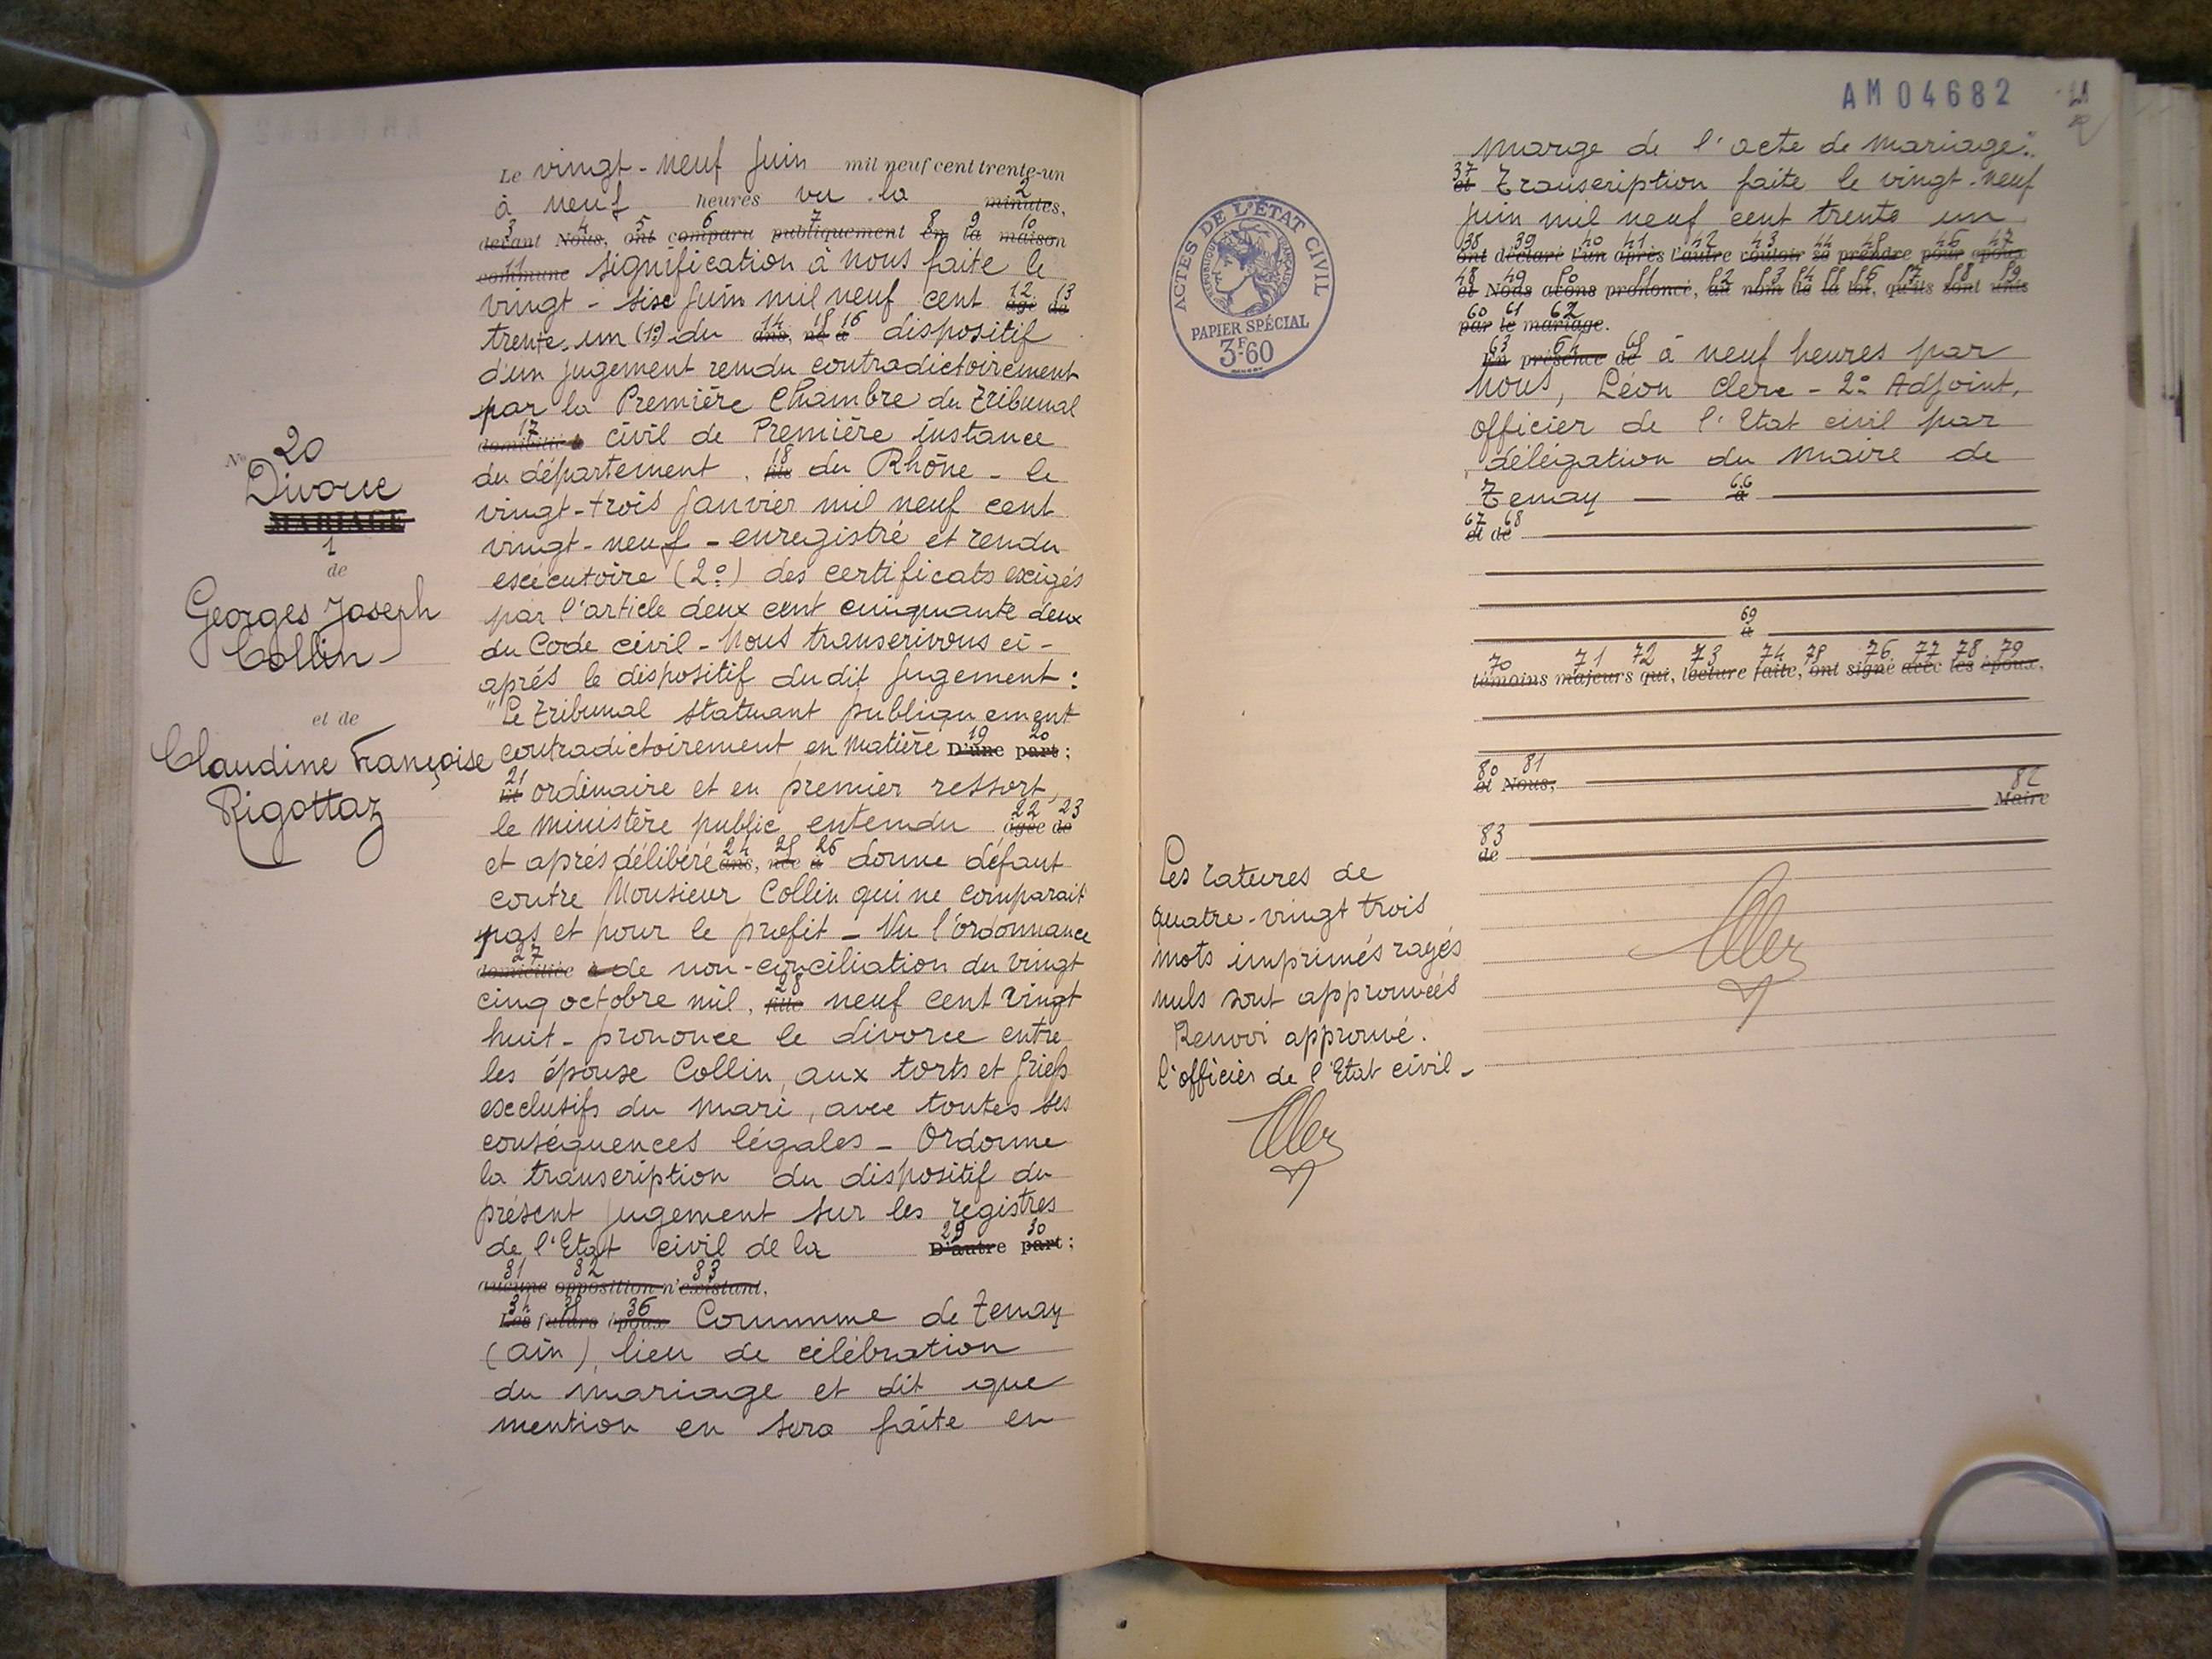 N° 20
Divorce
MARIAGE
1
de
Georges Joseph
Collin
et de
Claudine Françoise
Rigottaz
Le vingt-neuf Juin mil neuf cent trente-un
à neuf heures vu la 2 minutes,
3 4 5 6 7 8 9 10
devant Nous, ont comparu publiquement en la maison
11 commune signification à nous faite le
vingt-sise Juin mil neuf cent 12 13 âgé de
trente-un (1°) du 14 15 16 ans, né à dispositif
d'un jugement rendu contradictoirement
par la Première Chambre du Tribunal
17 domicilié à civil de Première instance
du département, 18 fils du Rhône - le
vingt-trois Janvier mil neuf cent
vingt-neuf - enregistré et rendu
exécutoire (2°) des certificats exigés
par l'article deux cent cinquante deux
du Code civil - Nous transcrivons ci-
après le dispositif dudit Jugement :
"Le Tribunal statuant publiquement
contradictoirement, en matière 19 20 D'une part ;
21 et ordinaire et en premier ressort,
le ministère public entendu 22 23 âgée de
et après délibéré 24 25 26 ans, née à donne défaut
contre Monsieur Collin qui ne comparait
pas et pour le profit - Vu l'ordonnance
27 domiciliée à de non-conciliation du vingt
cinq octobre mil, 28 fille neuf cent vingt
huit - prononce le divorce entre
les épouse Collin, aux torts et griefs
exclusifs du mari, avec toutes ses
conséquences légales - Ordonne
la transcription du dispositif du
présent jugement sur les registres
de l'Etat civil de la 29 30 D'autre part ;
31 32 33
aucune opposition n'existant,
34 35 36 Les futurs époux Commune de Tenay
(Ain), lieu de célébration
du mariage et dit que
mention en sera faite en
AM04682
marge de l'acte de mariage".
37 et Transcription faite le vingt-neuf
Juin mil neuf cent trente un
38 39 40 41 42 43 44 45 46 47
ont déclaré l'un après l'autre vouloir se prendre pour époux
48 49 50 51 52 53 54 55 56 57 58 59
et Nous avons prononcé, au nom de la loi, qu'ils sont unis
60 61 62
par le mariage.
63 64 65 En présence de à neuf heures par
Nous, Léon Clerc - 2e Adjoint,
officier de l'Etat civil par
délégation du Maire de
Tenay 66 à
67 68
et de
69
à
70 71 72 73 74 75 76 77 78 79
témoins majeurs qui, lecture faite, ont signé avec les époux,
80 81
et Nous,
82
Maire
83
de
ACTES DE L'ÉTAT CIVIL
RÉPUBLIQUE FRANÇAISE
PAPIER SPÉCIAL
3F60
Les ratures de
quatre-vingt trois
mots imprimés rayés
nuls sont approuvées
Renvoi approuvé.
L'officier de l'Etat civil -